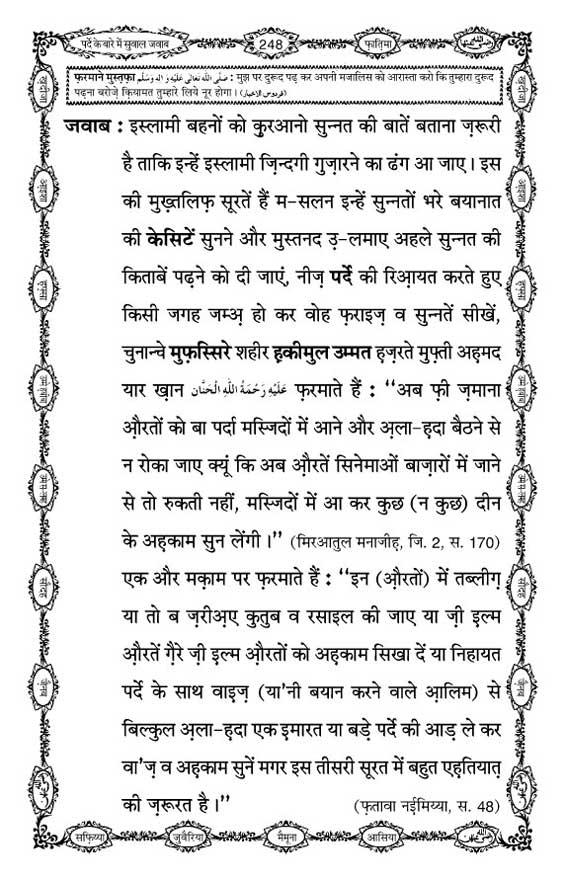 पर्दे के बारे में सुवाल जवाब
248
फ़ातिमा
फ़रमाने मुस्तफ़ा صَلَّى اللهُ تَعَالٰى عَلَيْهِ وَاٰلِهٖ وَسَلَّم : मुझ पर दुरूद पढ़ कर अपनी मजालिस को आरास्ता करो कि तुम्हारा दुरूद
पढ़ना बरोजे क़ियामत तुम्हारे लिये नूर होगा। (فردوس الاخبار)
जवाब : इस्लामी बहनों को क़ुरआनो सुन्नत की बातें बताना ज़रूरी
है ताकि इन्हें इस्लामी ज़िन्दगी गुज़ारने का ढंग आ जाए। इस
की मुख़्तलिफ़ सूरतें हैं म-सलन इन्हें सुन्नतों भरे बयानात
की केसिटें सुनने और मुस्तनद उ़-लमाए अहले सुन्नत की
किताबें पढ़ने को दी जाएं, नीज़ पर्दे की रिआ़यत करते हुए
किसी जगह जम्अ़ हो कर वोह फ़राइज़ व सुन्नतें सीखें,
चुनान्चे मुफ़स्सिरे शहीर ह़कीमुल उम्मत ह़ज़रते मुफ़्ती अह़मद
यार ख़ान عَلَيْهِ رَحْمَةُ اللهِ الْحَنَّان फ़रमाते हैं : ‘‘अब फ़ी ज़माना
औ़रतों को बा पर्दा मस्जिदों में आने और अ़ला-ह़दा बैठने से
न रोका जाए क्यूं कि अब औ़रतें सिनेमाओं बाज़ारों में जाने
से तो रुकती नहीं, मस्जिदों में आ कर कुछ (न कुछ) दीन
के अह़काम सुन लेंगी।’’ (मिरआतुल मनाजीह़, जि. 2, स. 170)
एक और मक़ाम पर फ़रमाते हैं : ‘‘इन (औ़रतों) में तब्लीग़
या तो ब ज़रीअ़ए कुतुब व रसाइल की जाए या ज़ी इ़ल्म
औ़रतें ग़ैरे ज़ी इ़ल्म औ़रतों को अह़काम सिखा दें या निहायत
पर्दे के साथ वाइ़ज़ (या'नी बयान करने वाले आ़लिम) से
बिल्कुल अ़ला-ह़दा एक इमारत या बड़े पर्दे की आड़ ले कर
वा'ज़ व अह़काम सुनें मगर इस तीसरी सूरत में बहुत एह़तियात़
की ज़रूरत है।’’ (फ़तावा नईमिय्या, स. 48)
सफ़िय्या
जुवैरिया
मैमूना
आसिया